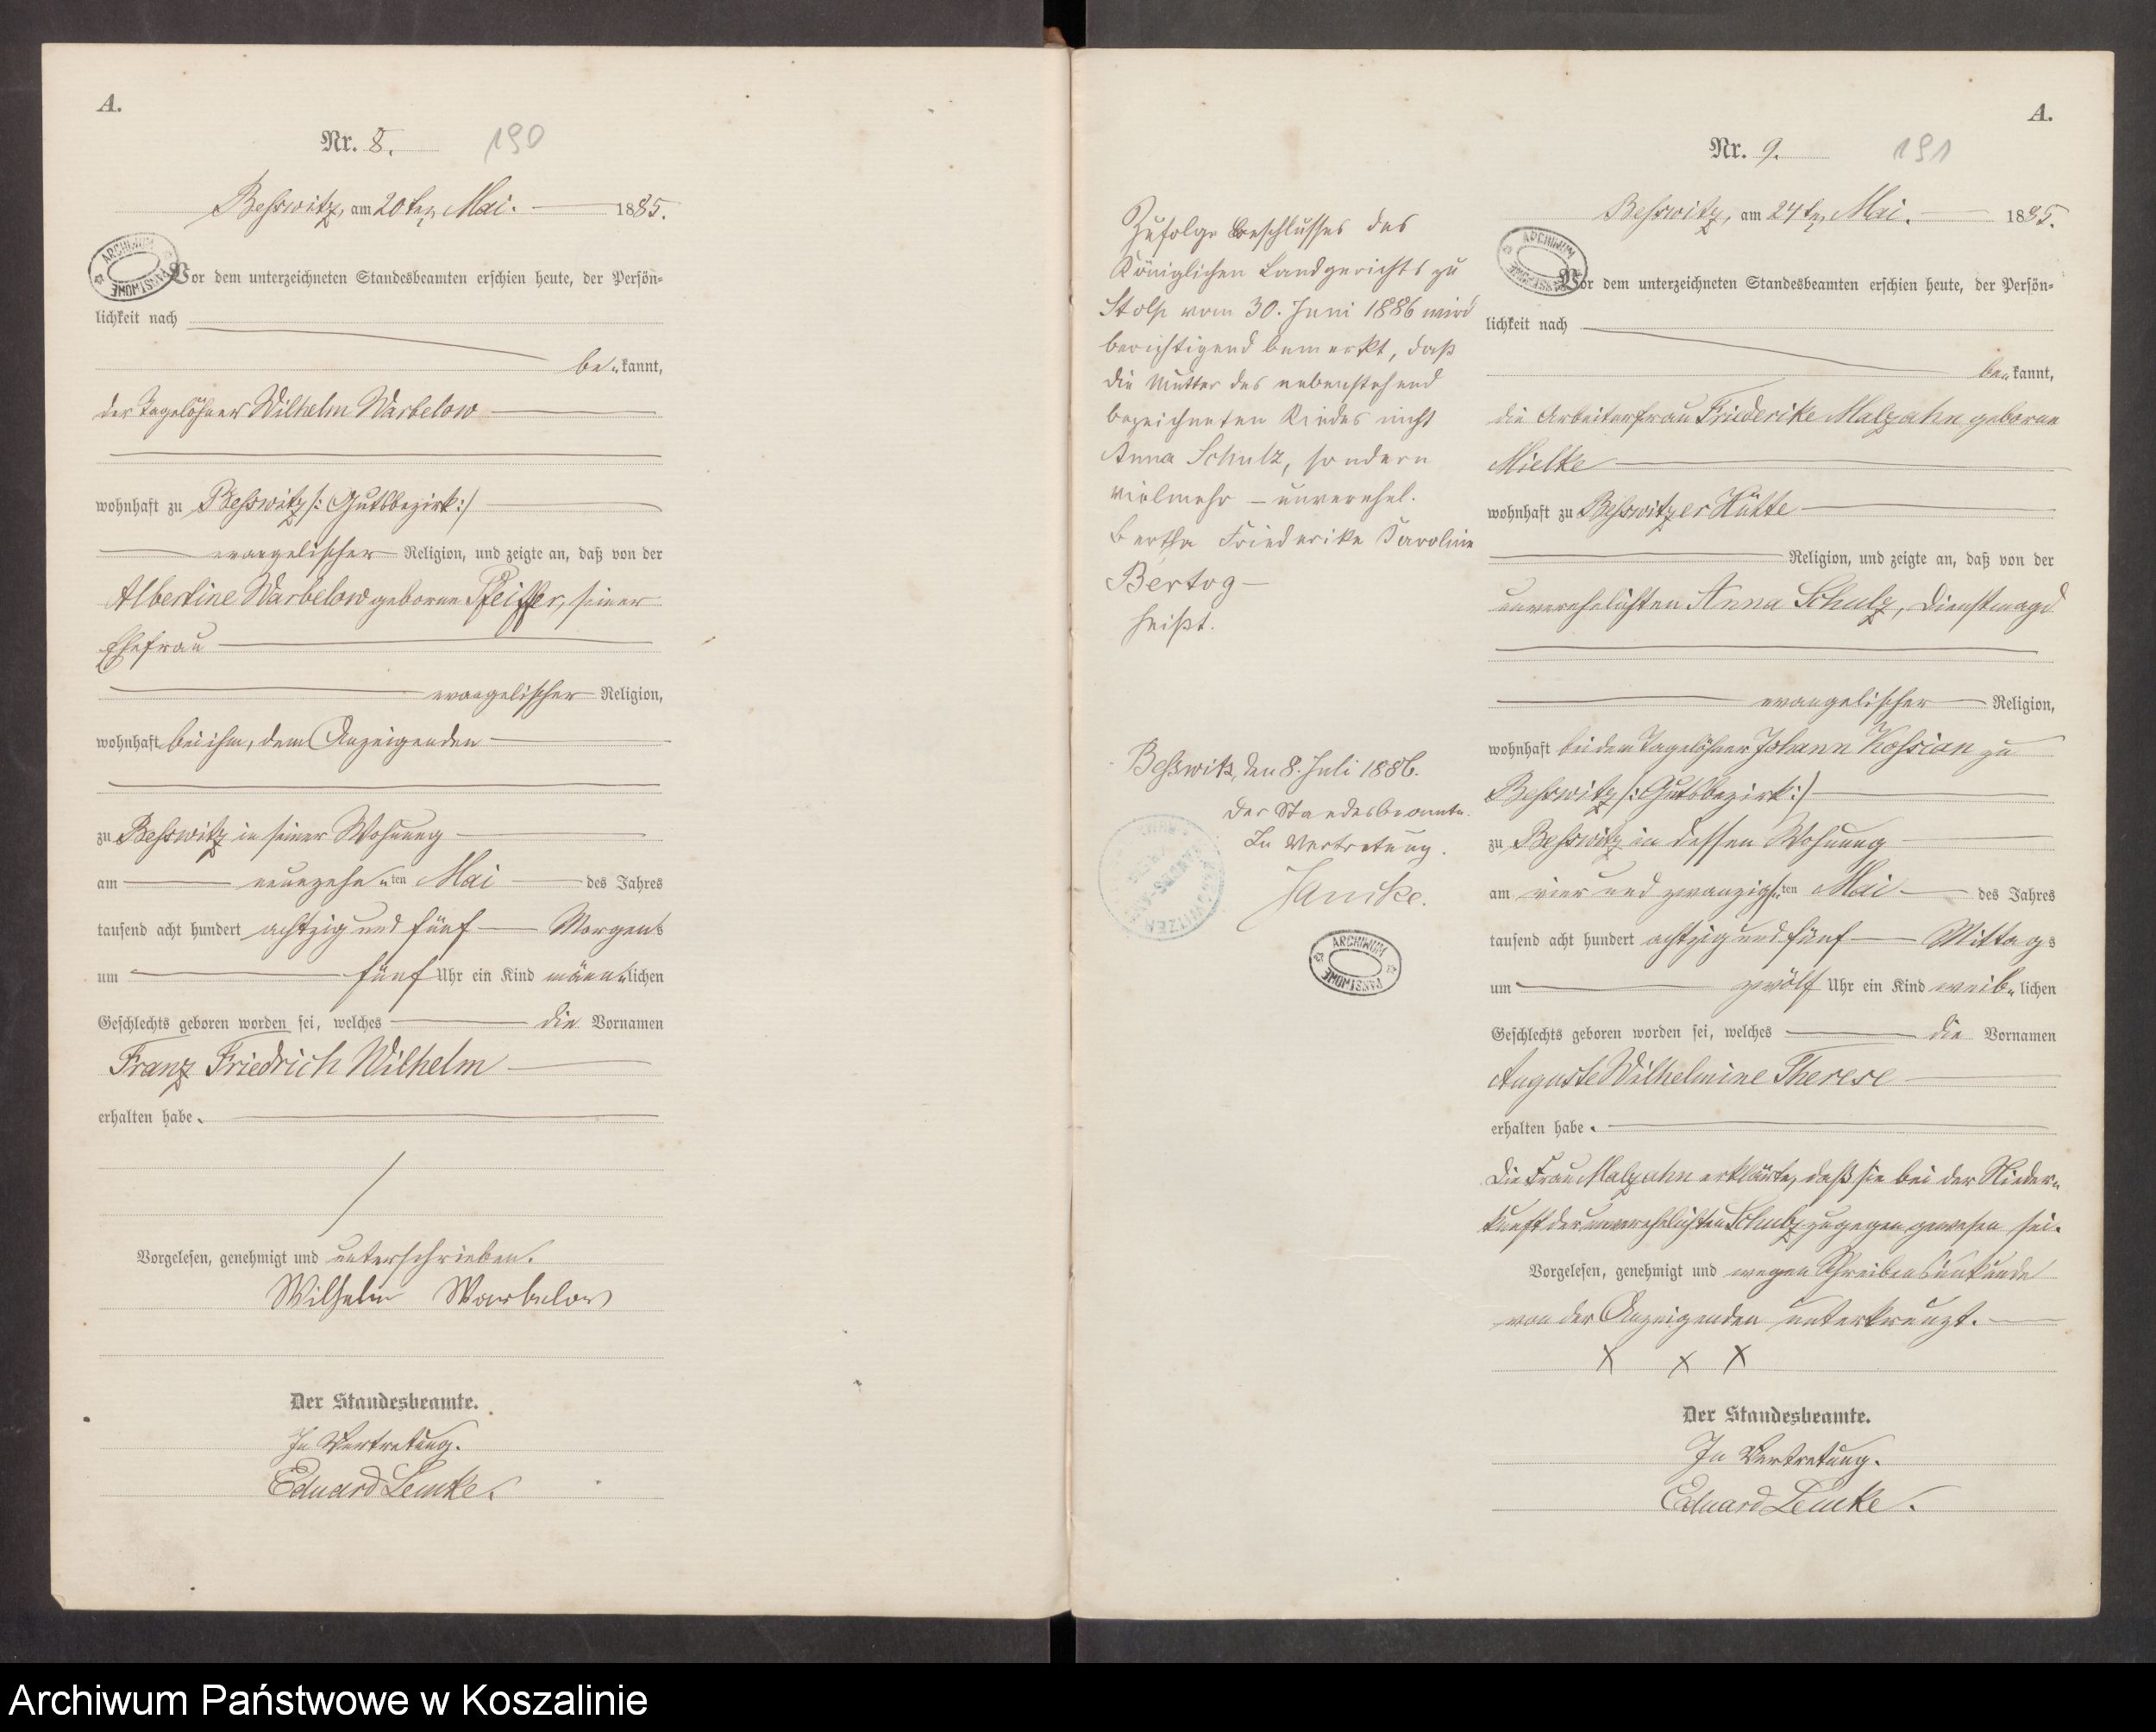 A.
Nr. 8. 190
Beßwitz, am 20ten Mai. 1885.
Vor dem unterzeichneten Standesbeamten erschien heute, der Persön-
lichkeit nach
be-kannt,
der Tagelöhner Wilhelm Warbelow
wohnhaft zu Beßwitz /: Gutsbezirk :/
evangelischer Religion, und zeigte an, daß von der
Albertine Warbelow geborne Pfeiffer, seiner
Ehefrau
evangelischer Religion,
wohnhaft bei ihm, dem Anzeigenden
zu Beßwitz in seiner Wohnung
am neunzehn-ten Mai des Jahres
tausend acht hundert achtzig und fünf Morgens
um fünf Uhr ein Kind männ-lichen
Geschlechts geboren worden sei, welches die Vornamen
Franz Friedrich Wilhelm
erhalten habe.
Vorgelesen, genehmigt und unterschrieben.
Wilhelm Warbelow
Der Standesbeamte.
In Vertretung.
Eduard Lemke.
Zufolge Beschlusses des
Königlichen Landgerichts zu
Stolp vom 30. Juni 1886 wird
berichtigend bemerkt, daß
die Mutter des nebenstehend
bezeichneten Kindes nicht
Anna Schulz, sondern
vielmehr – unverehel.
Bertha Friederike Karoline
Bertog –
heißt.
Beßwitz, den 8. Juli 1886.
Der Standesbeamte.
In Vertretung.
ARCHIWUM PAŃSTWOWE
A.
Nr. 9. 191
Beßwitz, am 24ten Mai. 1885.
ARCHIWUM PAŃSTWOWE
Vor dem unterzeichneten Standesbeamten erschien heute, der Persön-
lichkeit nach
be-kannt,
die Arbeiterfrau Friederike Malzahn geborne
Mielke
wohnhaft zu Beßwitzer Hütte
Religion, und zeigte an, daß von der
unverehelichten Anna Schulz, Dienstmagd
evangelischer Religion,
wohnhaft bei dem Tagelöhner Johann Koßian zu
Beßwitz /: Gutsbezirk :/
zu Beßwitz in dessen Wohnung
am vier und zwanzigsten Mai des Jahres
tausend acht hundert achtzig und fünf Mittags
um zwölf Uhr ein Kind weib-lichen
Geschlechts geboren worden sei, welches die Vornamen
Auguste Wilhelmine Therese
erhalten habe.
Die Frau Malzahn erklärte, daß sie bei der Nieder-
kunft der unverehelichten Schulz zugegen gewesen sei.
Vorgelesen, genehmigt und wegen Schreibensunkunde
von der Anzeigenden unterkreuzt.
X X X
Der Standesbeamte.
In Vertretung.
Eduard Lemke.
Archiwum Państwowe w Koszalinie